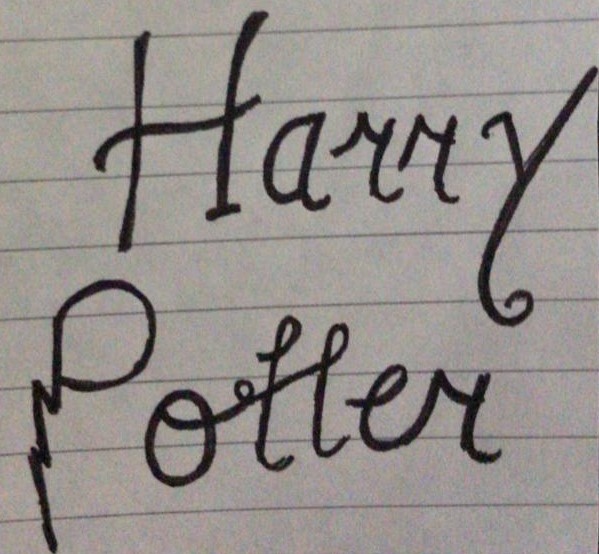 Harry
Potter